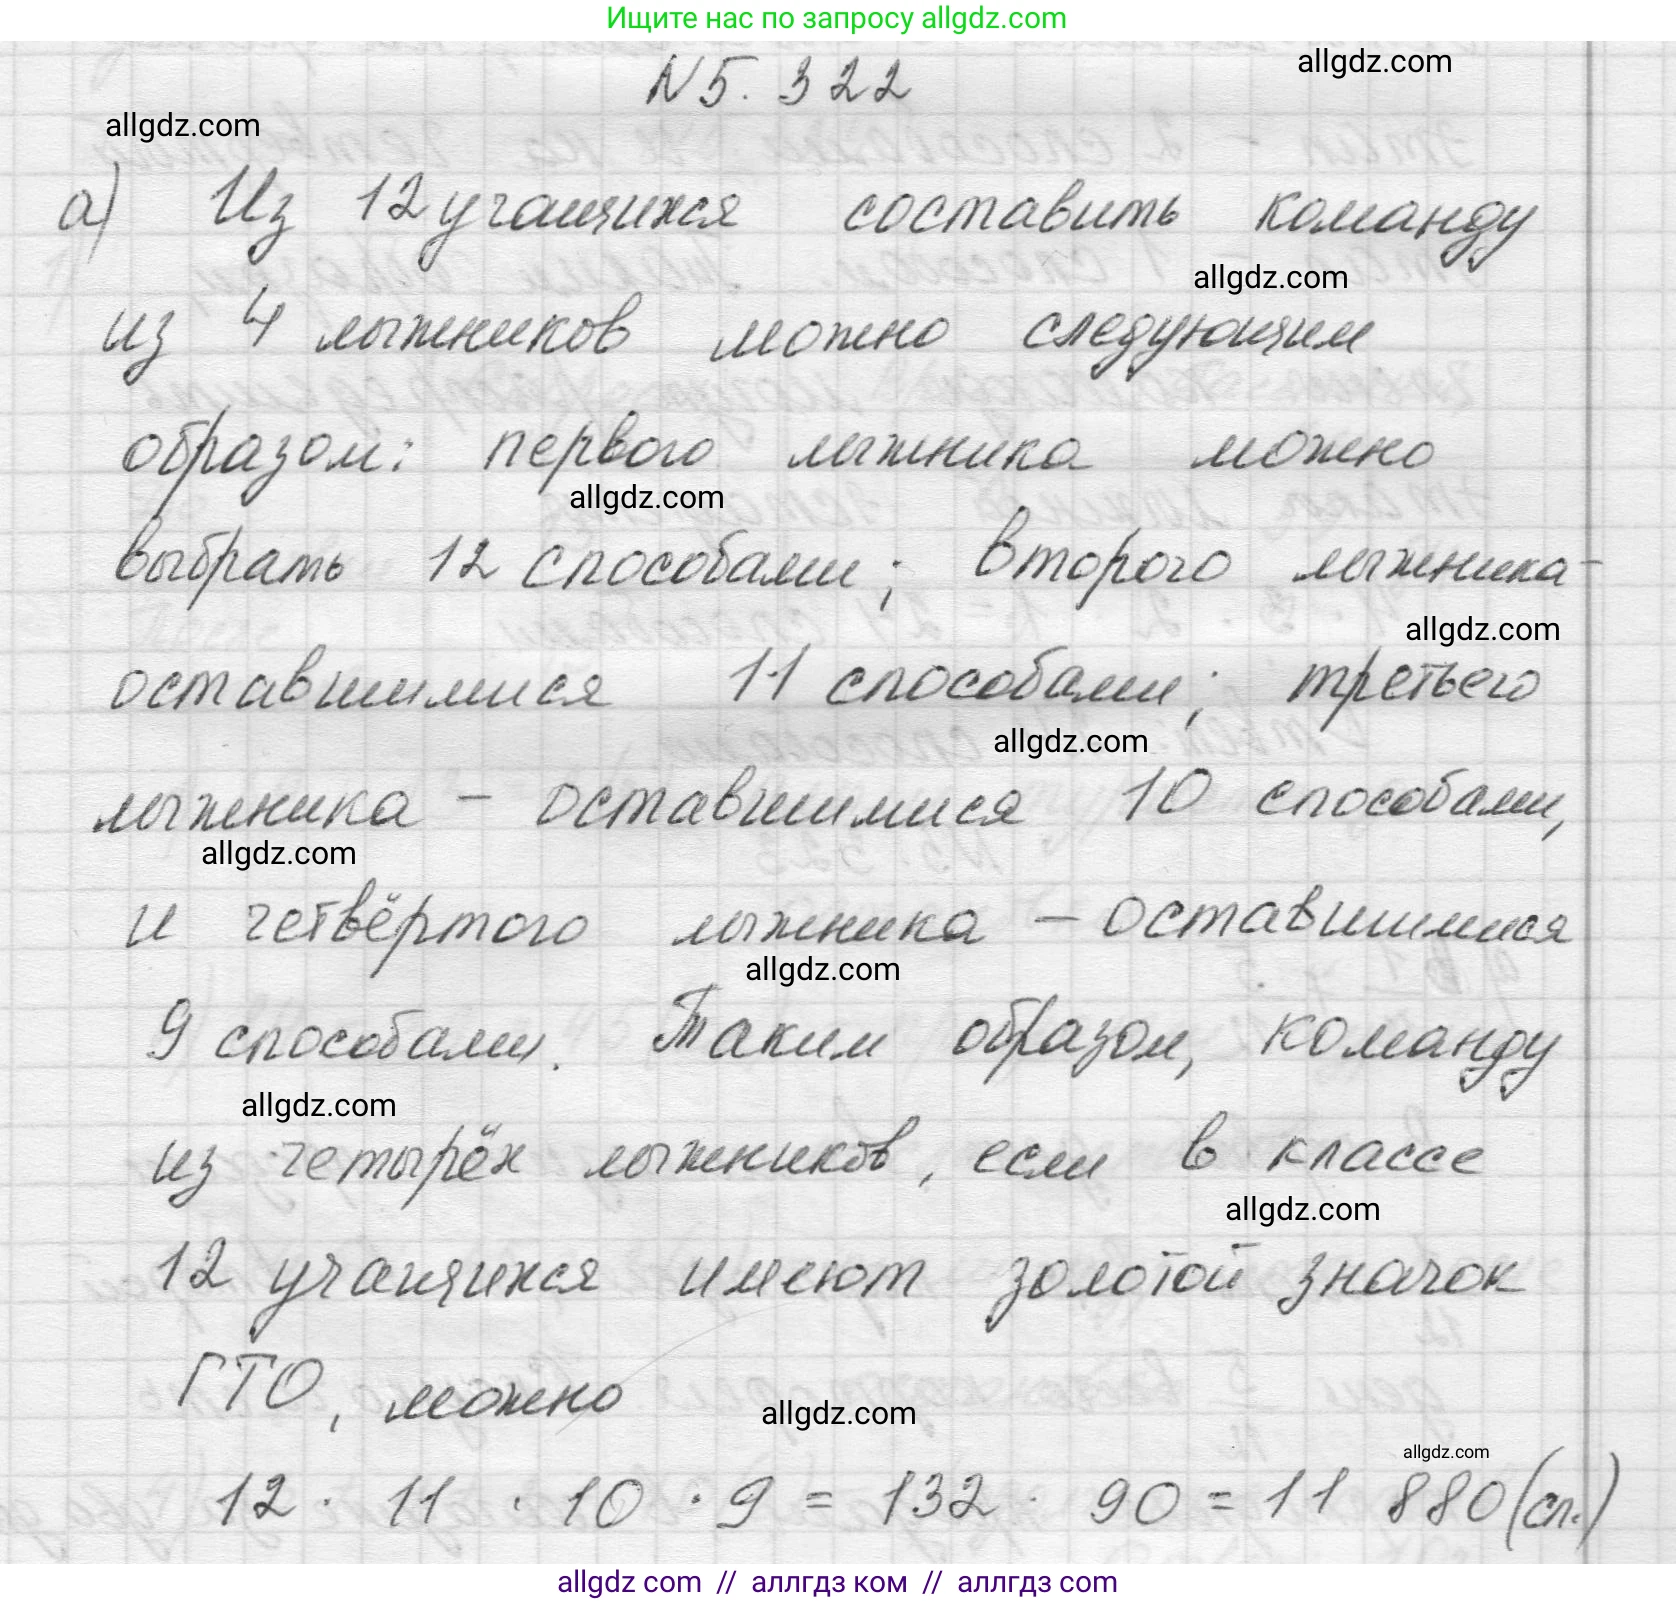 Ищите нас по запросу allgdz.com
N 5. 322
allgdz.com
allgdz.com
а) Из 12 учащихся составить команду
allgdz.com
из 4 лыжников можно следующим
образом: первого лыжника можно
allgdz.com
выбрать 12 способами; второго лыжника-
allgdz.com
оставшимися 11 способами; третьего
allgdz.com
лыжника - оставшимися 10 способами,
allgdz.com
и четвёртого лыжника - оставшимися
allgdz.com
9 способами. Таким образом, команду
allgdz.com
из четырёх лыжников, если в классе
allgdz.com
12 учащихся имеют золотой значок
ГТО, можно
allgdz.com
allgdz.com
12 · 11 · 10 · 9 = 132 · 90 = 11 880 (сп.)
allgdz com // аллгдз ком // аллгдз com